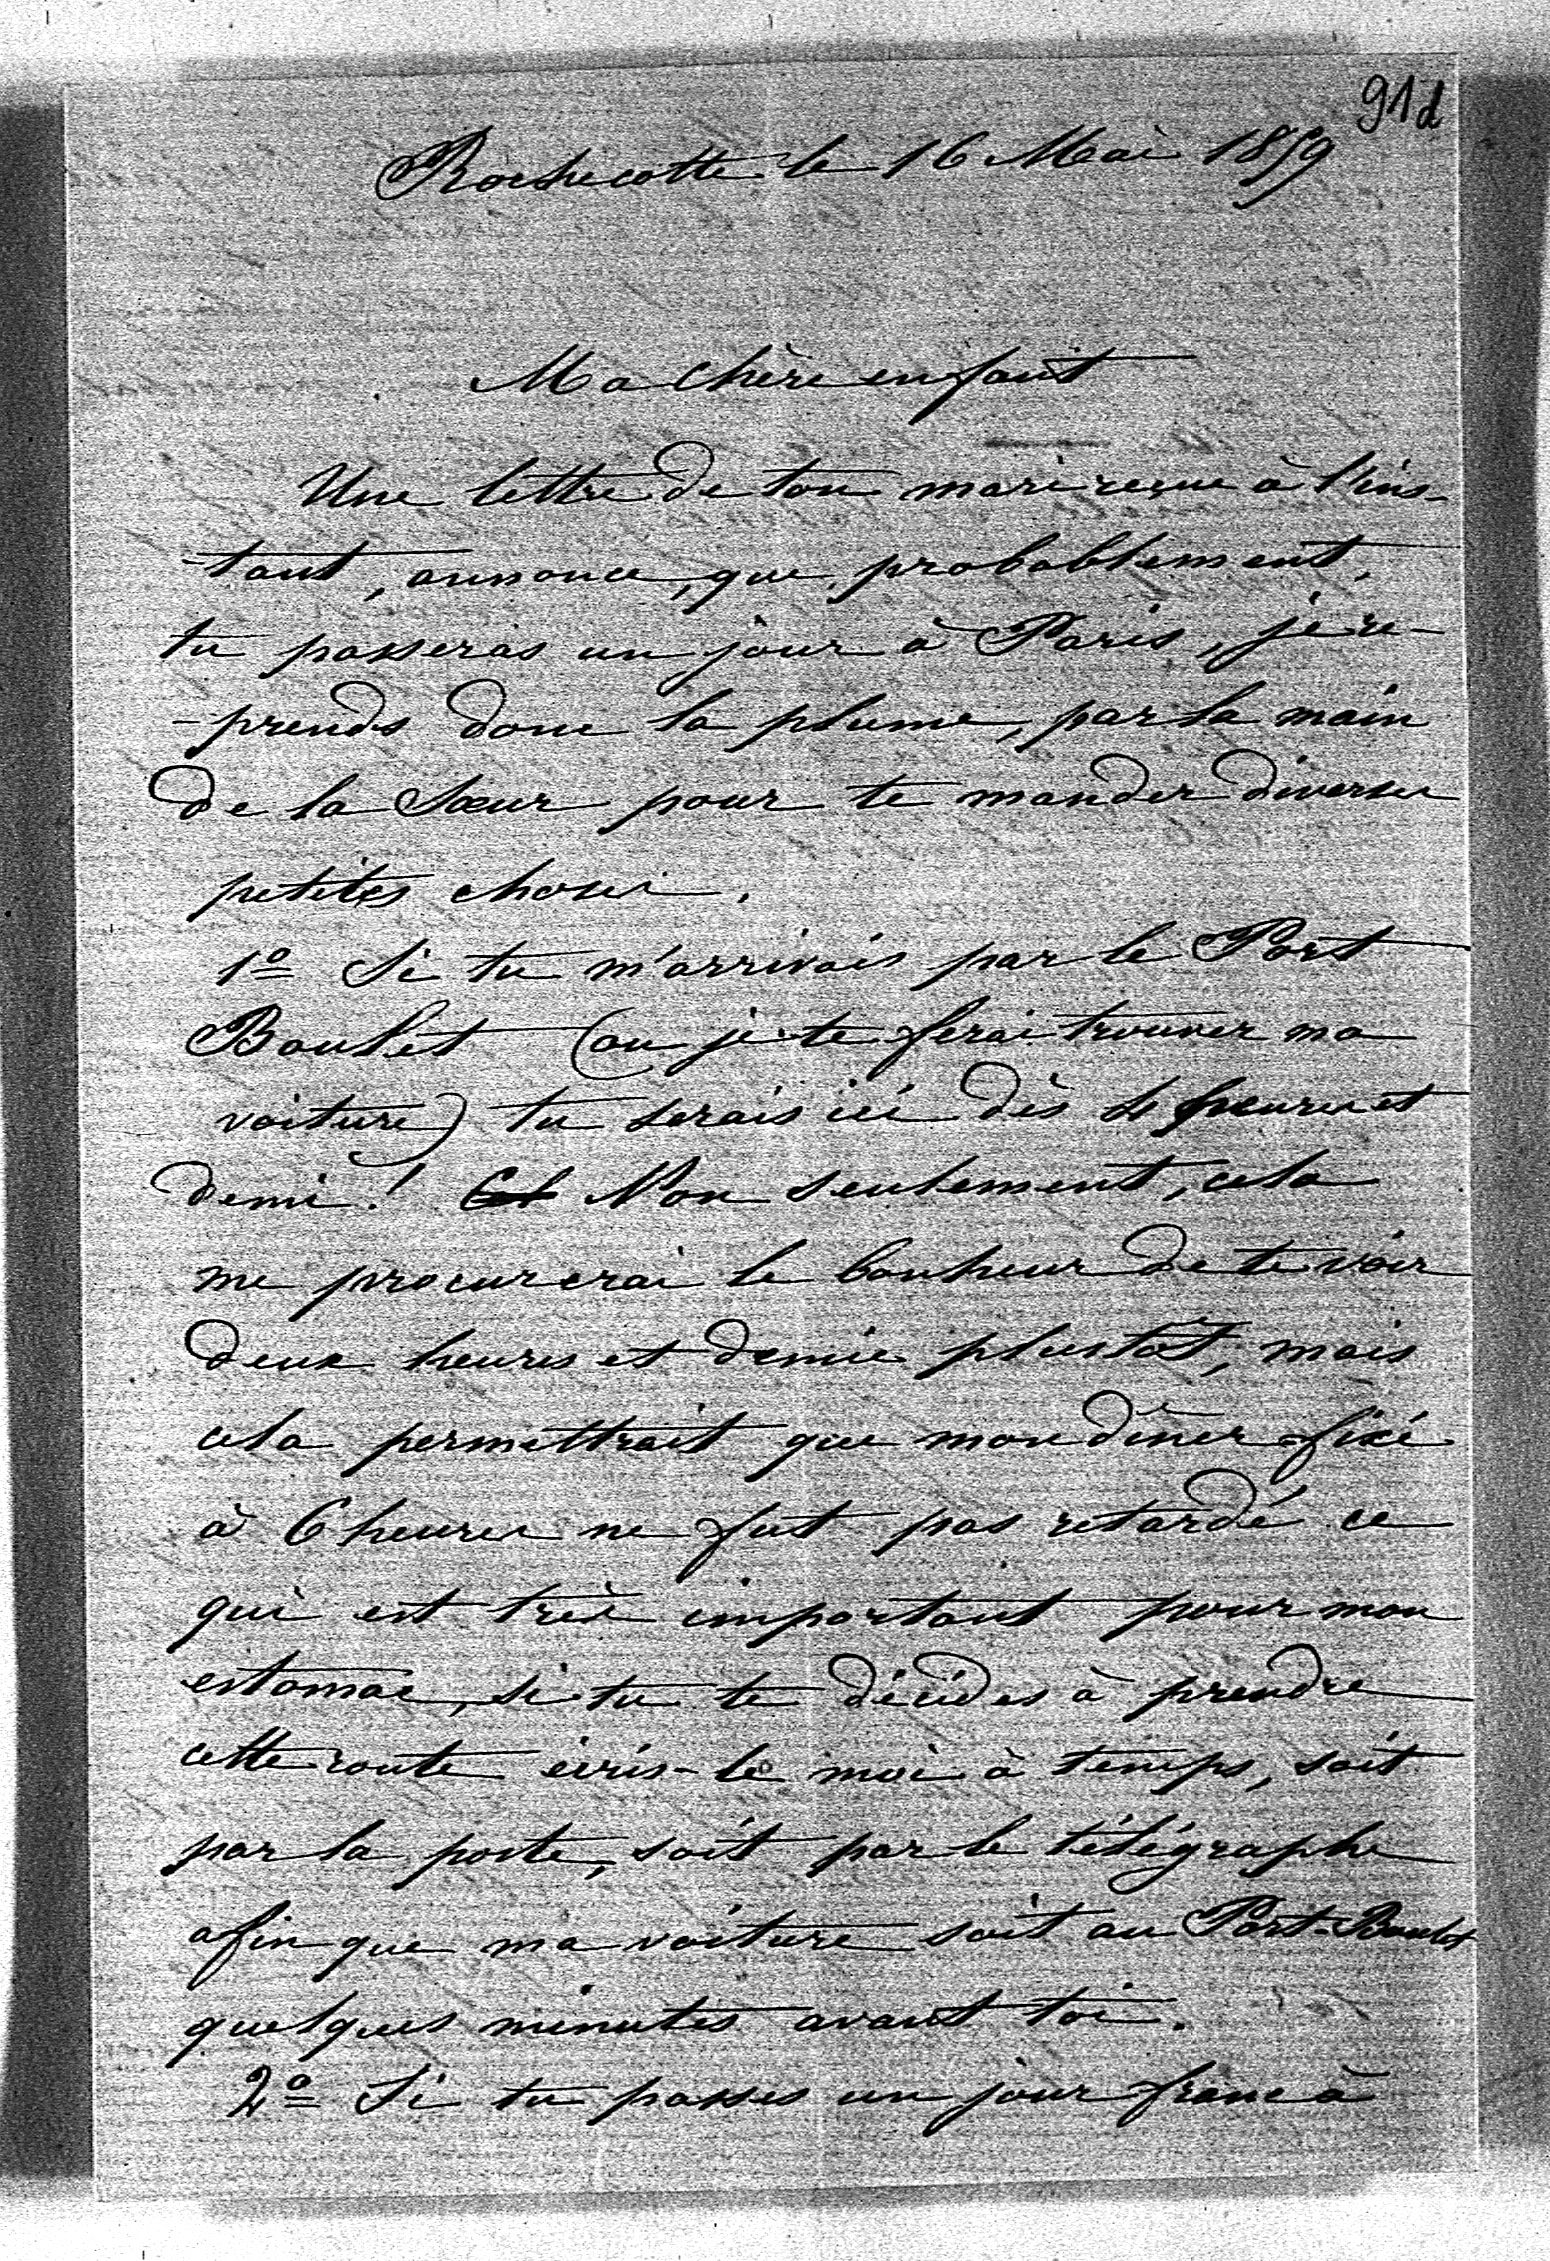 91d
Rochecotte le 16 Mai 1859
Ma chère enfant
Une lettre de ton mari reçue à l'ins-
-tant, annonce, que, probablement,
tu passeras un jour à Paris, je re-
-prends donc la plume, par la main
de la Sœur pour te mander diverses
petites choses.
1º Si tu m'arrivais par le Port
Boulet (ou je te ferai trouver ma
voiture) tu serais ici dès 4 heures et
demi! Non seulement, cela
me procurerai le bonheur de te voir
deux heures et demie plustôt, mais
cela permettrait que mon dîner fixé
à 6 heures ne fut pas retardé ce
qui est très important pour mon
estomac, si tu te décides à prendre
cette route écris-le moi à temps, soit
par la poste, soit par le télégraphe
afin que ma voiture soit au Port-Boulet
quelques minutes avant toi.
2º Si tu passes un jour franc à